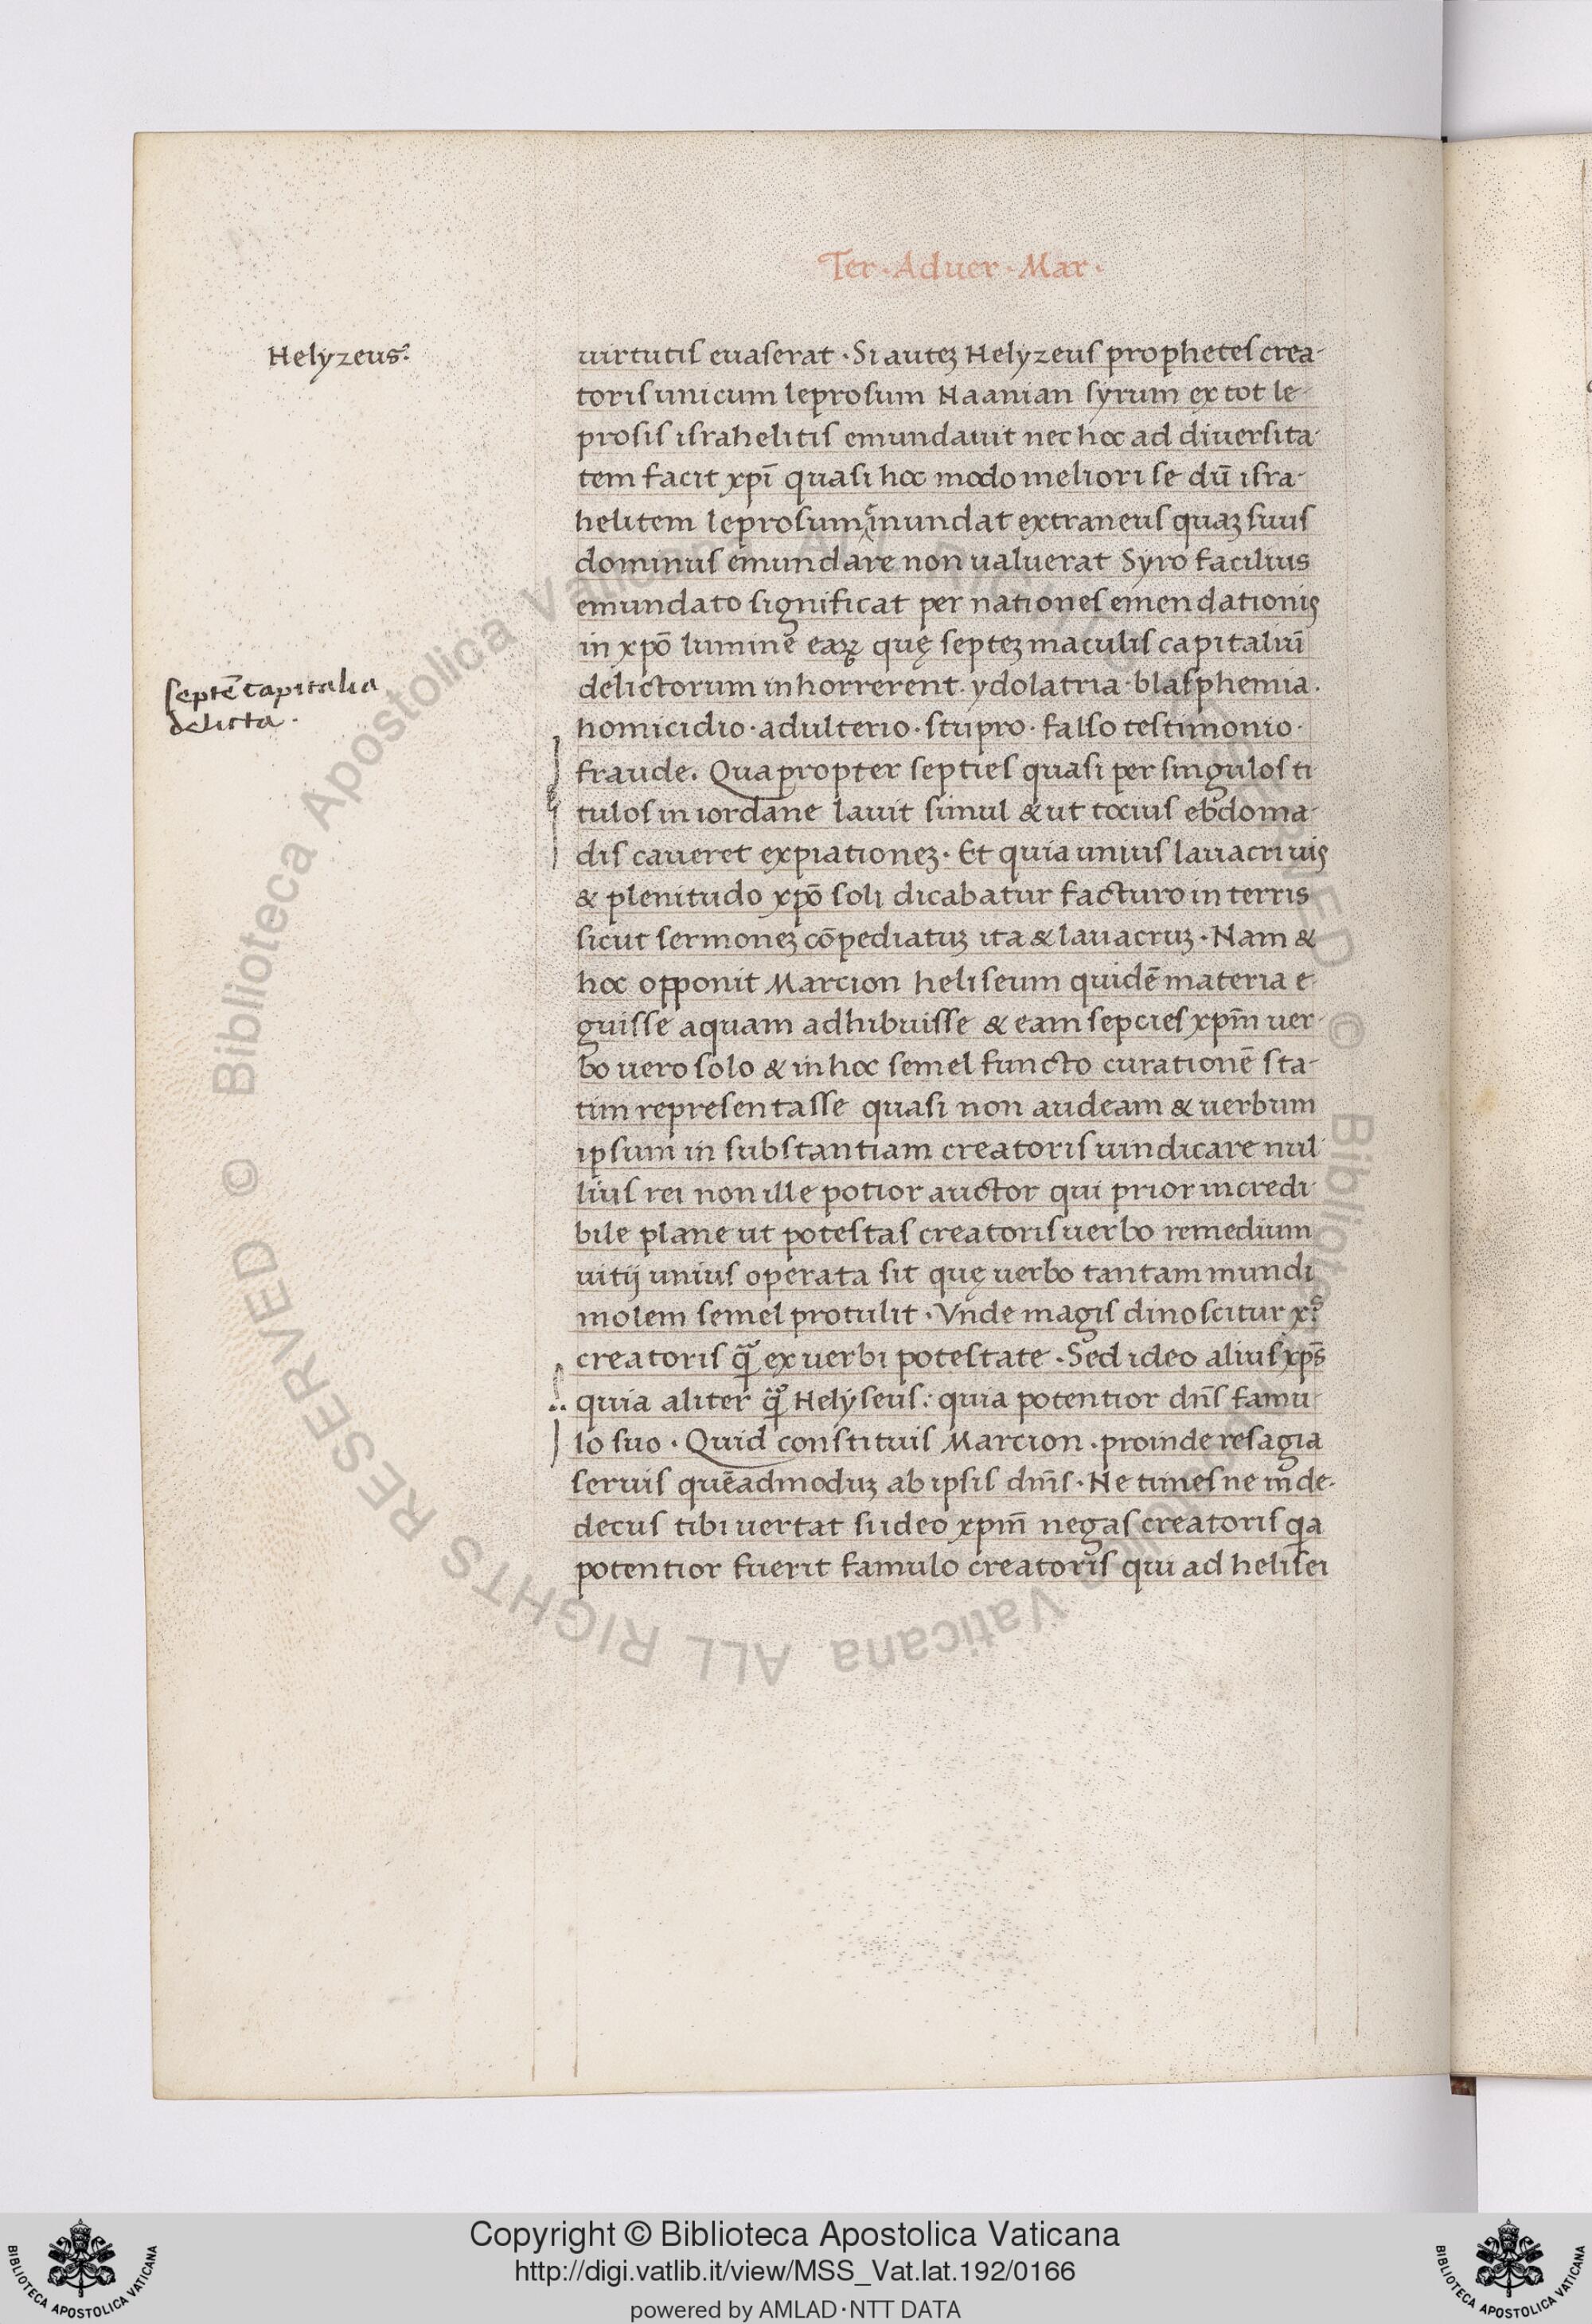 Ter · Aduer · Mar ·
Helyzeus:
uirtutis euaserat · Si auteʒ Helyzeus prophetes crea-
toris unicum leprosum Naaman syrum ex tot le-
prosis israhelitis emundauit nec hoc ad diuersita-
tem facit xp̄i quasi hoc modo meliori se dū isra-
helitem leprosum emundat extraneus quaʒ suus
dominus emundare non ualuerat Syro facilius
emundato significat per nationes emendationis
in xpō lumine eaꝝ quę septeʒ maculis capitaliū
septē capitalia
delicta ·
delictorum inhorrerent · ydolatria · blasphemia ·
homicidio · adulterio · stupro · falso testimonio ·
fraude. Quapropter septies quasi per singulos ti
tulos in iordane lauit simul & ut tocius ebdoma-
dis caueret expiationeʒ · Et quia unius lauacri uis
& plenitudo xpō soli dicabatur facturo in terris
sicut sermoneʒ cōpediatuʒ ita & lauacruʒ · Nam &
hoc opponit Marcion heliseum quidē materia e-
guisse aquam adhibuisse & eam sepcies xpm̄ uer-
bo uero solo & in hoc semel functo curationē sta-
tim representasse quasi non audeam & uerbum
ipsum in substantiam creatoris uindicare nul
lius rei non ille potior auctor qui prior incredi
bile plane ut potestas creatoris uerbo remedium
uitij unius operata sit quę uerbo tantam mundi
molem semel protulit · Vnde magis dinoscitur x:s
creatoris q̄ꝫ ex uerbi potestate · Sed ideo alius xps̄
quia aliter qͦ Helyseus: quia potentior dn̄s famu
lo suo · Quid constituis Marcion · proinde res agi a
seruis quēadmoduʒ ab ipsis dn̄is · Ne times ne in de-
decus tibi uertat si ideo xpm̄ negas creatoris qa
potentior fuerit famulo creatoris qui ad helisei
Copyright © Biblioteca Apostolica Vaticana
http://digi.vatlib.it/view/MSS_Vat.lat.192/0166
powered by AMLAD·NTT DATA
BIBLIOTECA APOSTOLICA VATICANA
BIBLIOTECA APOSTOLICA VATICANA
© Biblioteca Apostolica Vaticana ALL RIGHTS RESERVED © Biblioteca Apostolica Vaticana ALL RIGHTS RESERVED